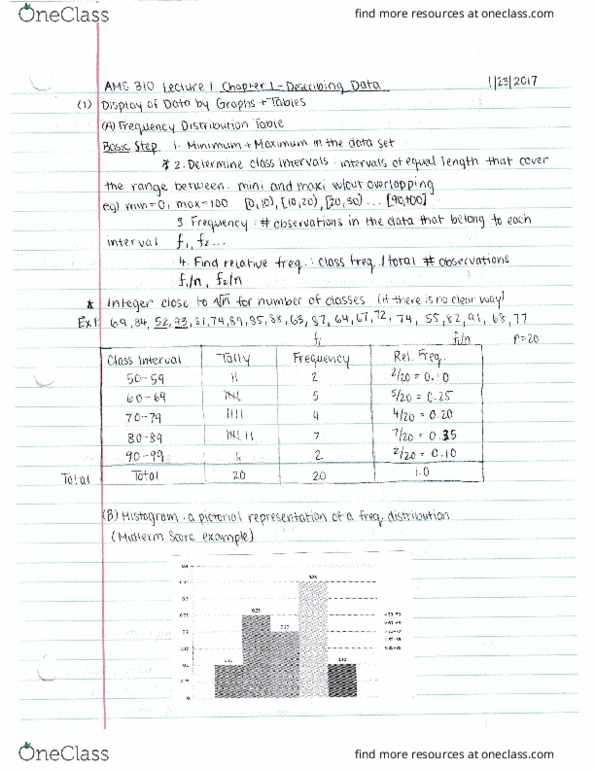 OneClass
find more resources at oneclass.com
AMS 310 Lecture 1 Chapter 1 - Describing Data 1/23/2017
(1) Display of Data by Graphs + Tables
(A) Frequency Distribution Table
Basic Step 1. Minimum + Maximum in the data set
* 2. Determine class intervals: intervals of equal length that cover
the range between mini and maxi w/out overlapping
eg) min=0, max=100 [0,10), [10,20), [20,30) ... [90,100]
3. Frequency: # observations in the data that belong to each
interval f₁, f₂ ...
4. Find relative freq.: class freq. / total # observations
f₁/n, f₂/n
* Integer close to √n for number of classes (if there is no clear way)
Ex1: 69, 84, 52, 93, 81, 74, 89, 85, 88, 63, 87, 64, 67, 72, 74, 55, 82, 91, 68, 77
fᵢ fᵢ/n n=20
Class Interval Tally Frequency Rel. Freq.
50-59 II 2 2/20 = 0.10
60-69 5 5/20 = 0.25
70-79 IIII 4 4/20 = 0.20
80-89 7 7/20 = 0.35
90-99 2 2/20 = 0.10
Total Total 20 20 1.0
(B) Histogram: a pictorial representation of a freq. distribution
(Midterm Score example)
OneClass
find more resources at oneclass.com